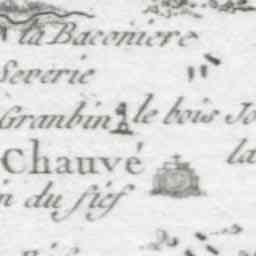 la Baconiere
Severie
Granbin
le bois Jo
Chauvé
la
n du fief